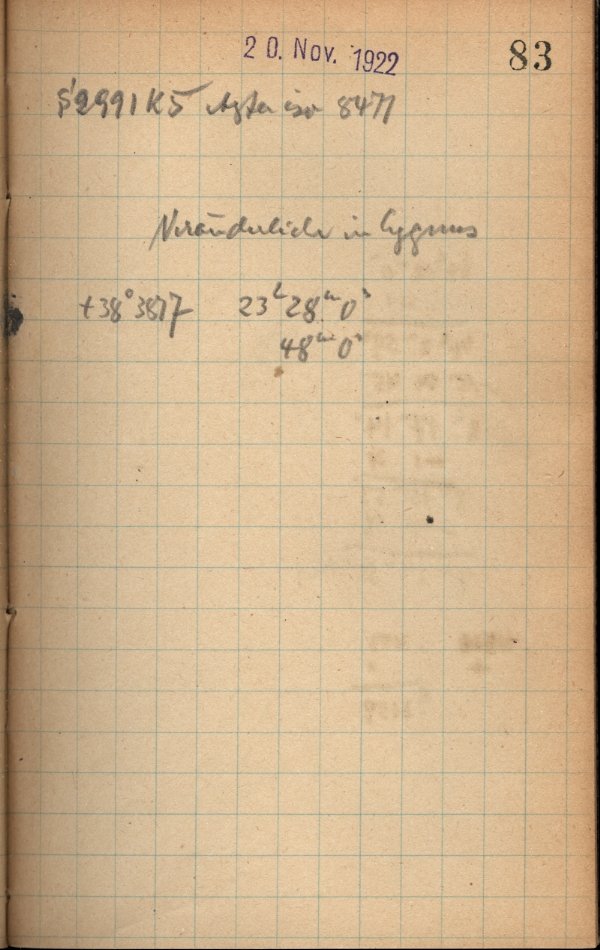 20. Nov. 1922 83
S 2991 K5 Agfa iso 8471
Veränderliche in Cygnus
+38° 3877 23ʰ 28ᵐ 0ˢ
48ᵐ 0ˢ